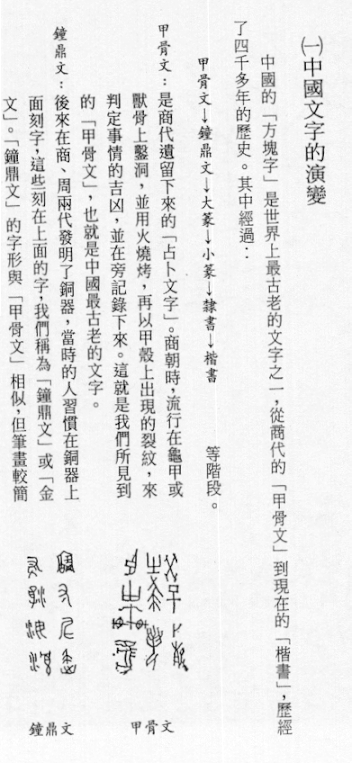 ㈠中國文字的演變
中國的「方塊字」是世界上最古老的文字之一，從商代的「甲骨文」到現在的「楷書」，歷經
了四千多年的歷史。其中經過：
甲骨文→鐘鼎文→大篆→小篆→隸書→楷書　等階段。
甲骨文：是商代遺留下來的「占卜文字」。商朝時，流行在龜甲或
獸骨上鑿洞，並用火燒烤，再以甲殼上出現的裂紋，來
判定事情的吉凶，並在旁記錄下來。這就是我們所見到
的「甲骨文」，也就是中國最古老的文字。
鐘鼎文：後來在商、周兩代發明了銅器，當時的人習慣在銅器上
面刻字，這些刻在上面的字，我們稱為「鐘鼎文」或「金
文」。「鐘鼎文」的字形與「甲骨文」相似，但筆畫較簡
甲骨文
鐘鼎文